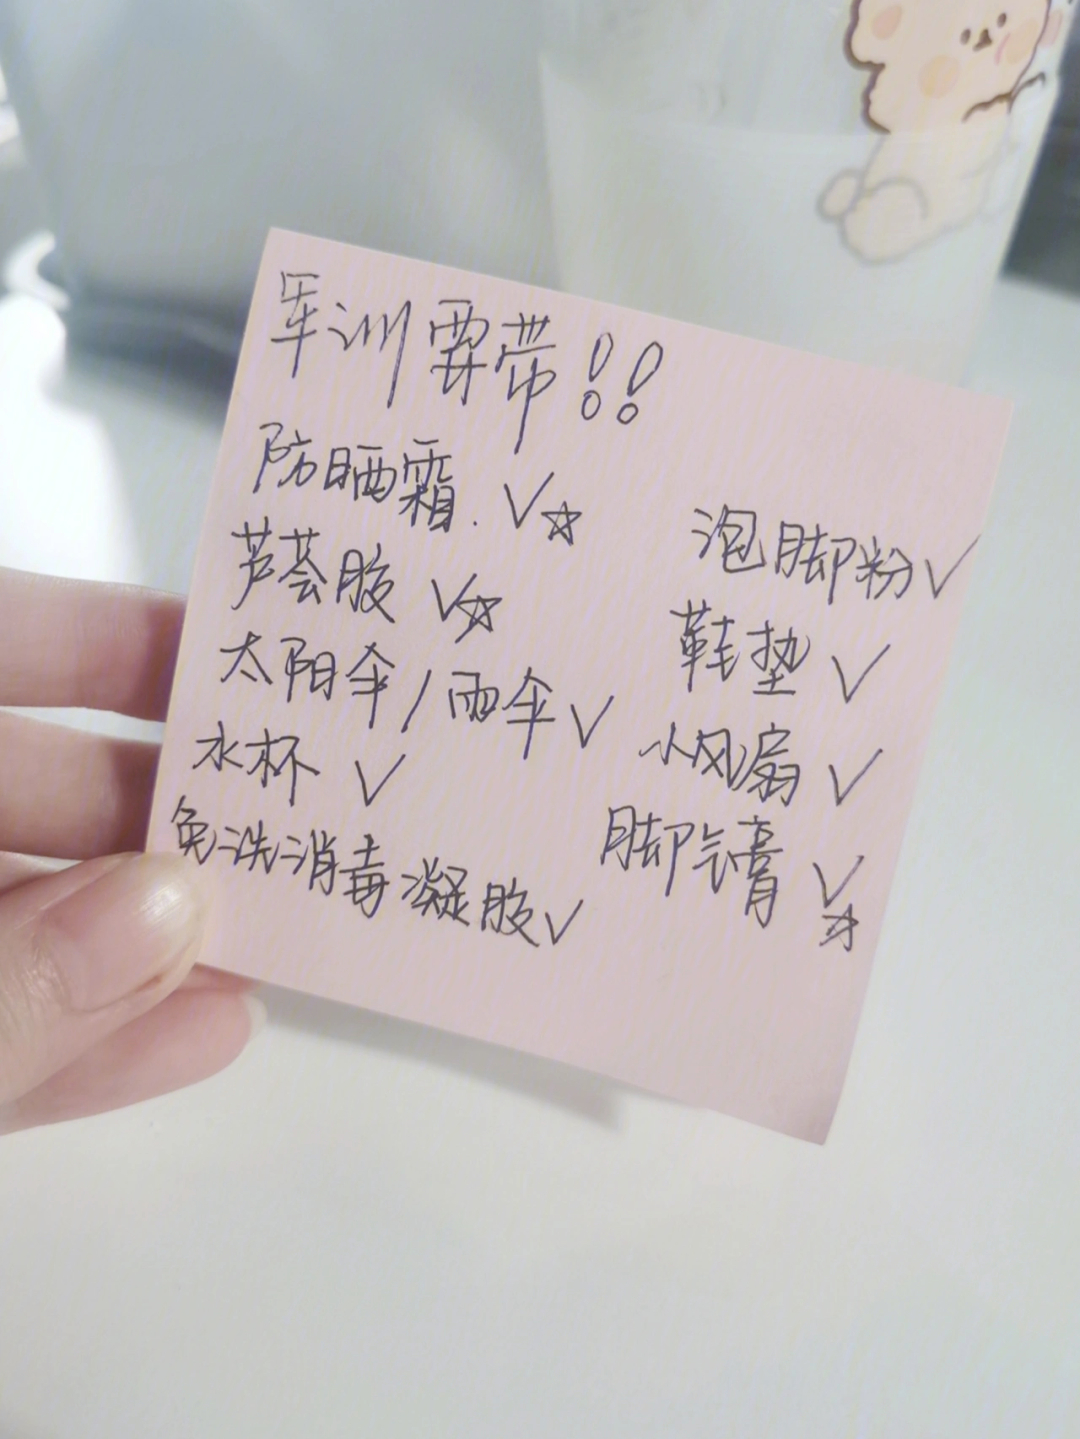 军训要带!!
防晒霜. ✓☆
芦荟胶 ✓☆
太阳伞/雨伞✓
水杯 ✓
免洗消毒凝胶✓
泡脚粉✓
鞋垫 ✓
小风扇 ✓
脚气膏 ✓☆